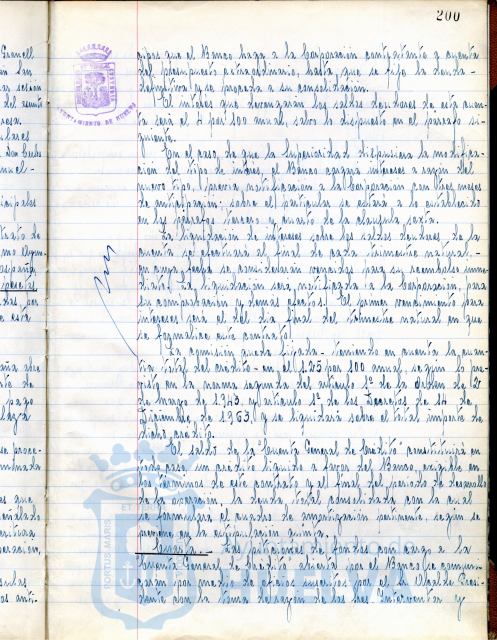 200
cipos que el Banco haga a la Corporación contratante a cuenta
del presupuesto extraordinario, hasta que se fije la deuda
definitiva y se proceda a su consolidación.
El interés que devengarán los saldos deudores de esta cuen-
ta será el 4 por 100 anual, salvo lo dispuesto en el párrafo si-
guiente.
En el caso de que la Superioridad dispusiera la modifica-
ción del tipo de interés, el Banco cargará intereses a razón del
nuevo tipo, previa notificación a la Corporación con tres meses
de anticipación; sobre el particular se estará a lo establecido
en los párrafos tercero y cuarto de la cláusula sexta.
La liquidación de intereses sobre los saldos deudores de la
cuenta se efectuará al final de cada trimestre natural,
en cuya fecha se considerarán vencidos para su reembolso inme-
diato. La liquidación será notificada a la Corporación, para
su comprobación y demás efectos. El primer vencimiento para
intereses será el del día final del trimestre natural en que
se formalice este contrato.
La comisión queda fijada - teniendo en cuenta la cuan-
tía total del crédito - en el 1.25 por 100 anual, según lo pre-
visto en la norma segunda del artículo 1º de la Orden de 21
de marzo de 1943 y artículo 1º de los Decretos de 14 de
Diciembre de 1963, y se liquidará sobre el total importe de
dicho crédito.
El saldo de la "Cuenta General de Crédito" constituirá en
todo caso un crédito líquido a favor del Banco, exigible en
los términos de este contrato y al final del período de desarrollo
de la operación, la deuda total consolidada con la cual
se formulará el cuadro de amortización pertinente, según se
previene en la estipulación quinta.
Las peticiones de fondos con cargo a la
Cuenta General de Crédito abierta por el Banco se comuni-
carán por medio de oficios suscritos por el Alcalde Presi-
dente con la toma de razón de los Sres. Interventor y
AYUNTAMIENTO DE HUELVA
PORTUS MARIS
HUELVA